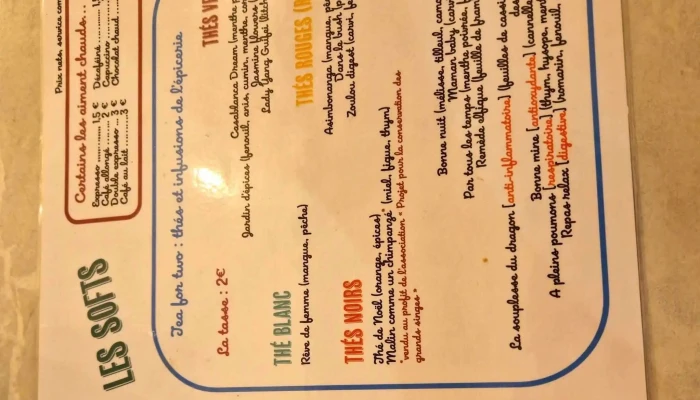 Prix nets, service com
LES SOFTS
Certains les aiment chauds...
Expresso ............ 1,5 €
Café allongé ....... 2 €
Double expresso ... 3 €
Café au lait .......... 3 €
Décaféiné
Capuccino
Chocolat chaud
Tea for two : thés et infusions de l'épicerie
La tasse : 2€
THÉ BLANC
Rêve de femme (mangue, pêche)
THÉS NOIRS
Thé de Noël (orange, épices)
Malin comme un chimpanzé* (miel, figue, thym)
*vendu au profit de l'association « Projet pour la conservation des
grands singes »
THÉS VE
Casablanca Dream (menthe p
Jardin d'épices (fenouil, anis, cumin, menthe, co
Jasmine flowers
Lady Yang Guifei (litch
THÉS ROUGES (R
Asimbonanga (mangue, pê
Dans le bush (p
Zoulou digest (carvi, fe
Bonne nuit (mélisse, tilleul, cam
Maman baby (carv
Par tous les temps (menthe poivrée, f
Remède elfique (feuille de fram
La souplesse du dragon [anti-inflammatoire] (feuilles de cassi
des
Bonne mine [antioxydante] (cannelle
A pleins poumons [respiratoire] (thym, hysope, men
Repas relax [digestive] (romarin, fenouil,